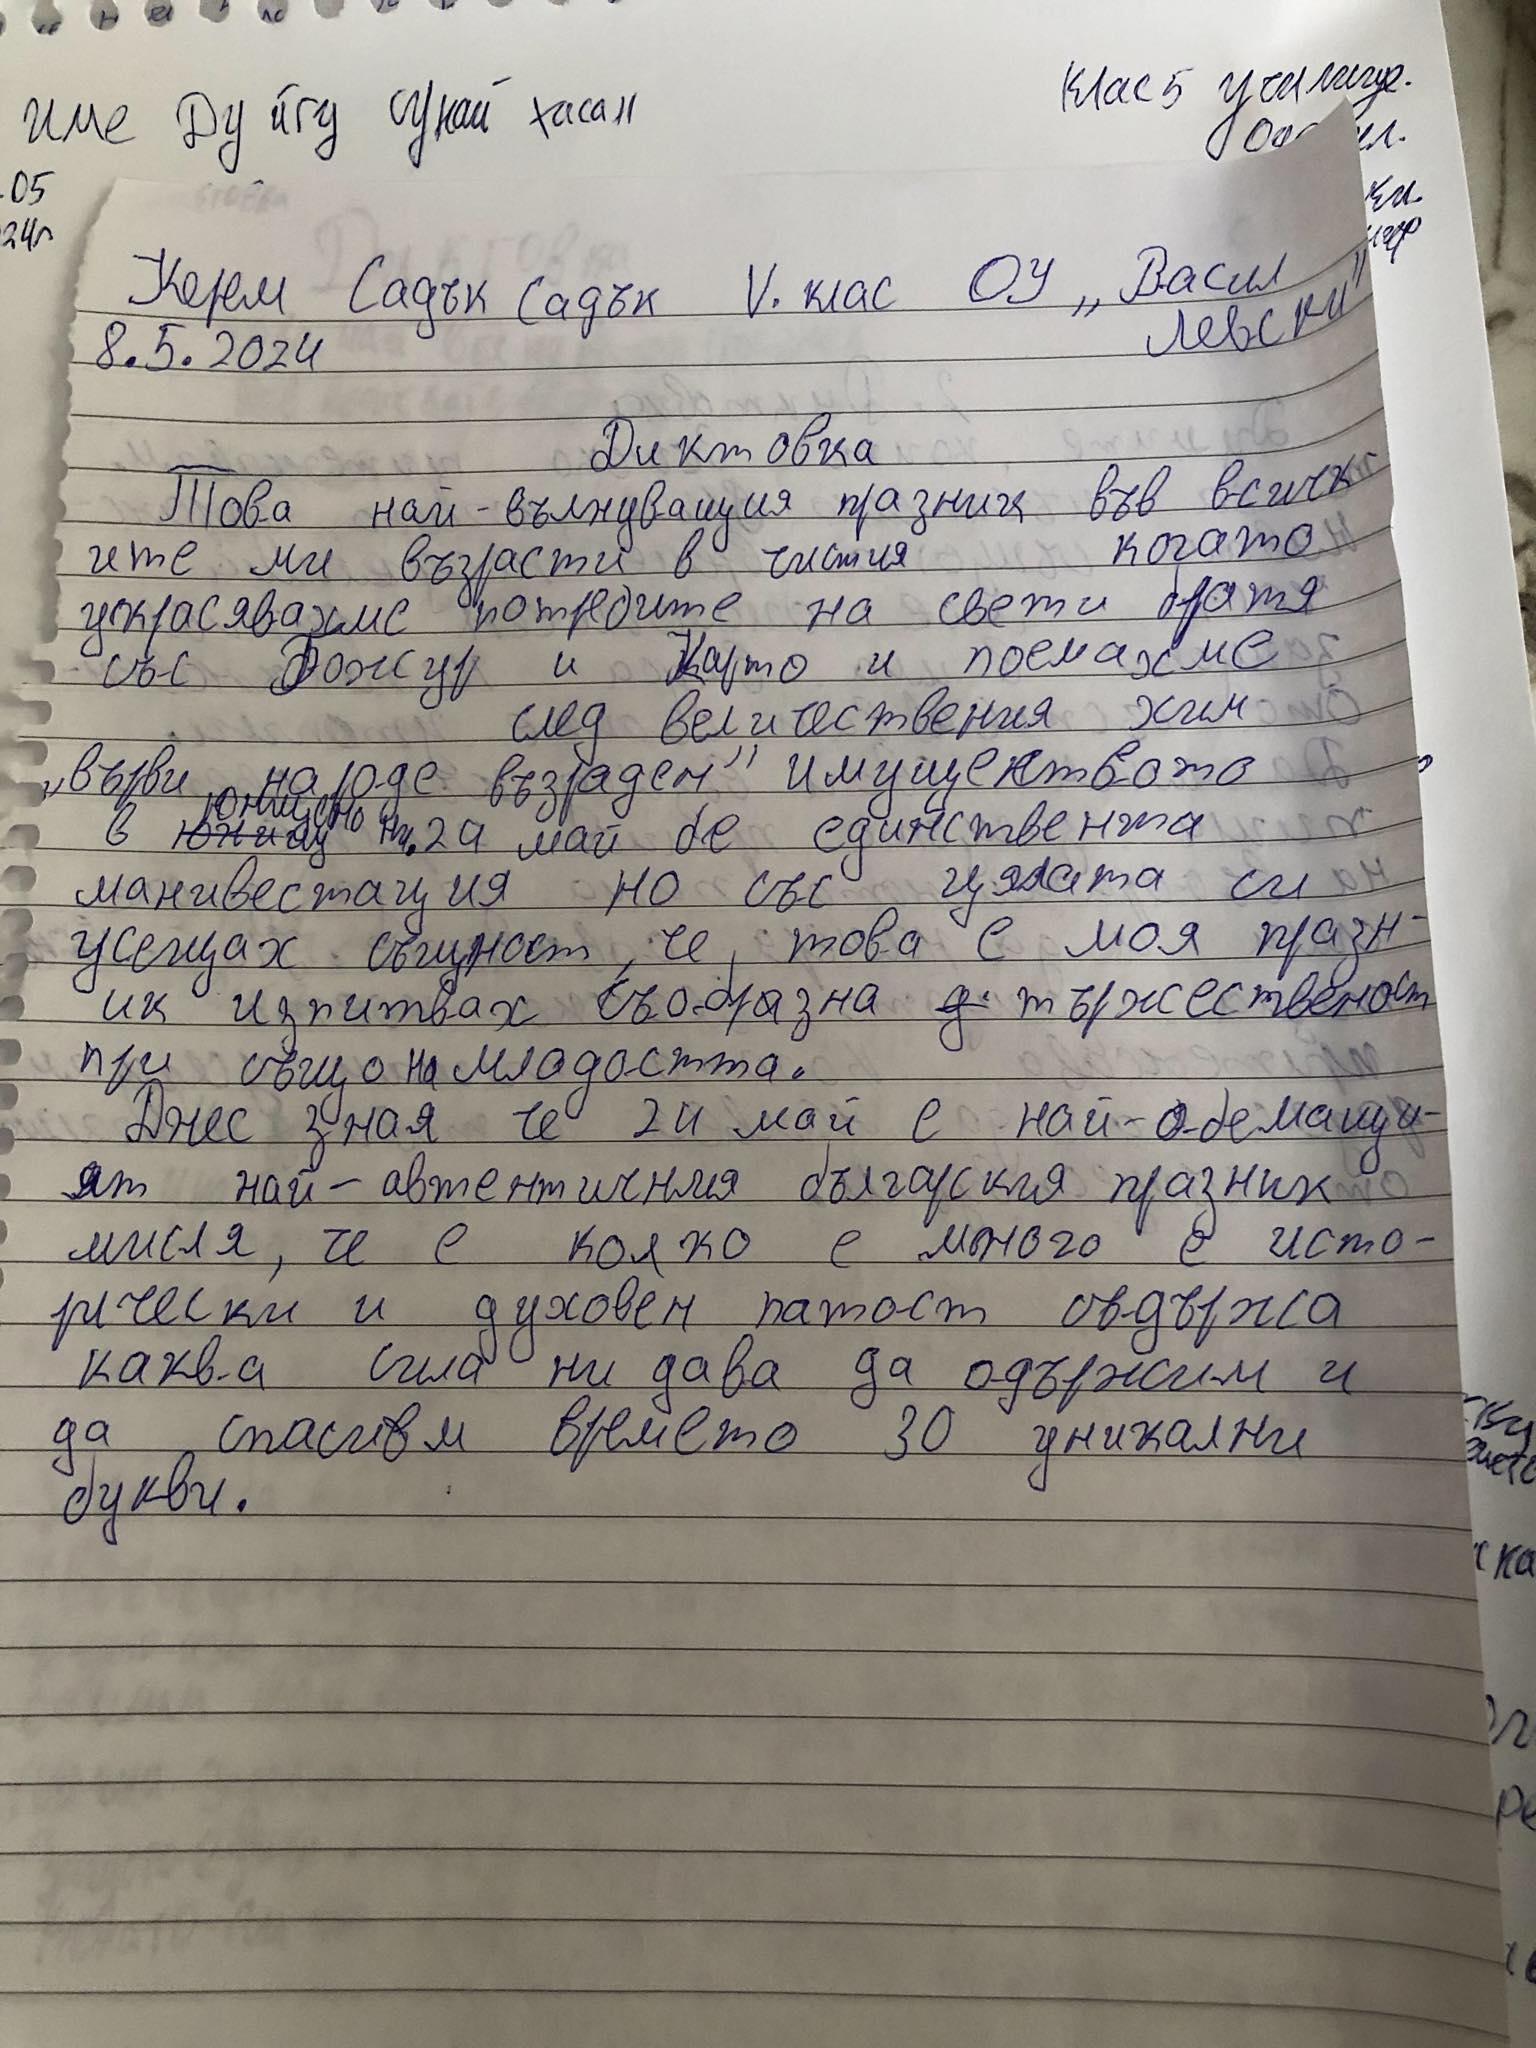 Име Дуйгу Сунай хасан
Клас 5 училище.
.05
24г
Керем Садък Садък V. клас ОУ „Васил
Левски"
8.5.2024
Диктовка
Това най-вълнуващия празник във всичк
ите ми възрасти в чистия когато
украсявахме потребите на свети братя
със Божур и Карто и поемахме
след величествения химн
„върви народе възраден" имущеетвото
в юнищно 24 май бе единствента
манивестация но със цялата си
усещах същност, че, това е моя празн-
ик изпитвах съобразна тържественост
при също на младостта.
Днес зная че 24 май е най-обемащи-
ят най-автентичния българския празник
мисля, че е колко е много е исто-
рически и духовен патост овдържа
каква сила ни дава да одържим и
да спасивм времето 30 уникални
букви.